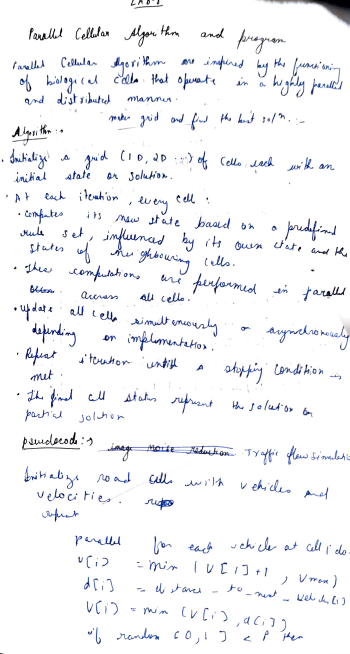 LAB-8
Parallel Cellular Algorithm and program
Parallel Cellular Algorithm are inspired by the functioning
of biological cells that operate in a highly parallel
and distributed manner.
make grid and find the best solⁿ. :-
Algorithm :→
• Initialize a grid (1D, 2D ...) of cells each with an
initial state or solution.
• At each iteration, every cell :
• computes its new state based on a predefined
rule set, influenced by its own state and the
states of neighbouring cells.
• These computations are performed in parallel
across all cells.
• update all cells simultaneously or asynchronously
depending on implementation.
• Repeat iteration until a stopping condition is
met.
• The final cell states represent the solution or
partial solution
pseudocode :→ image noise reduction Traffic flow simulatio
Initialize road cells with vehicles and
velocities.
repeat
parallel for each vehicle at cell i do
v[i] = min (V[i]+1, Vmax)
d[i] = distance_to_next_vehicle(i)
V[i] = min (V[i], d[i])
if random (0,1) < P then